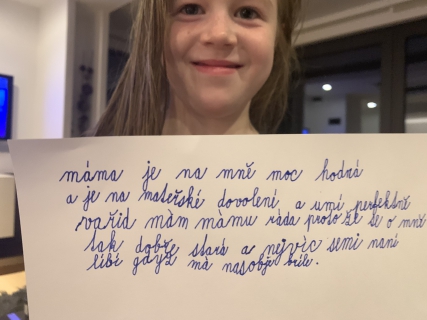 máma je na mně moc hodná
a je na mateřské dovolené a umí perfektně
vařid mám mámu ráda proto že se o mně
tak dobře stará a nejvíc semi naní
líbí když má nasobje brile.